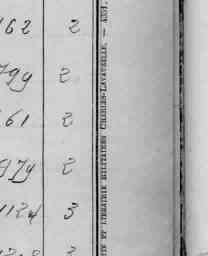 162 2
799 2
61 2
979 2
1124 3
IE ET LIBRAIRIE MILITAIRES CHARLES-LAVAUZELLE. —